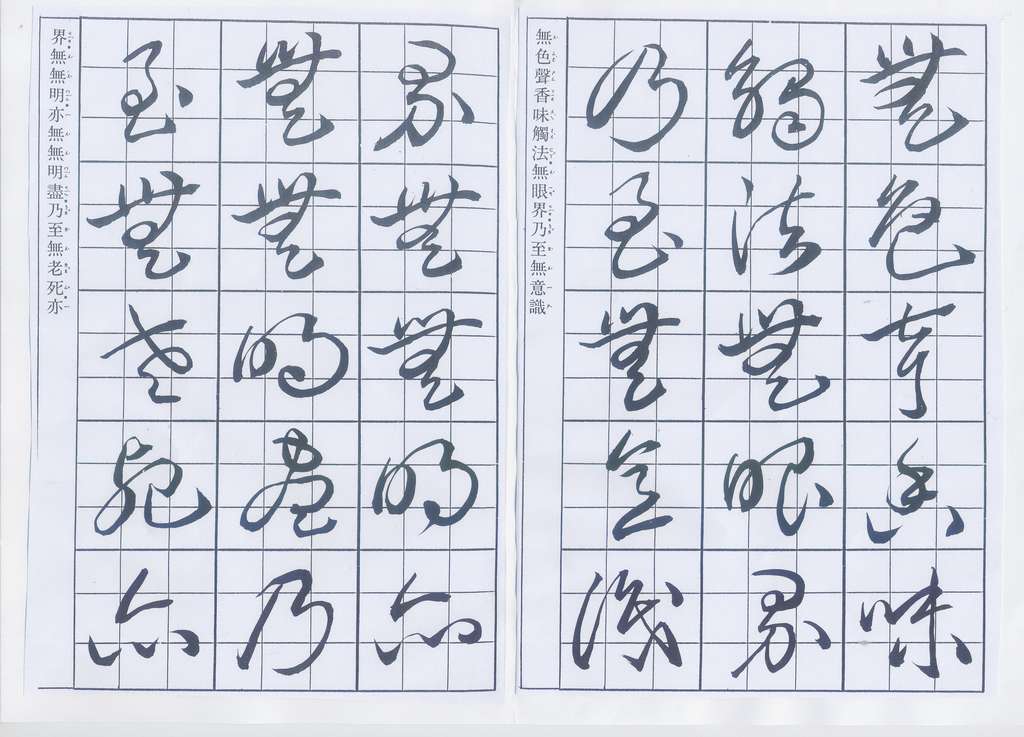 無色聲香味觸法無眼界乃至無意識
無色聲香味
觸法無眼界
乃至無意識
界無無明亦無無明盡乃至無老死亦
界無無明亦
無無明盡乃
至無老死亦